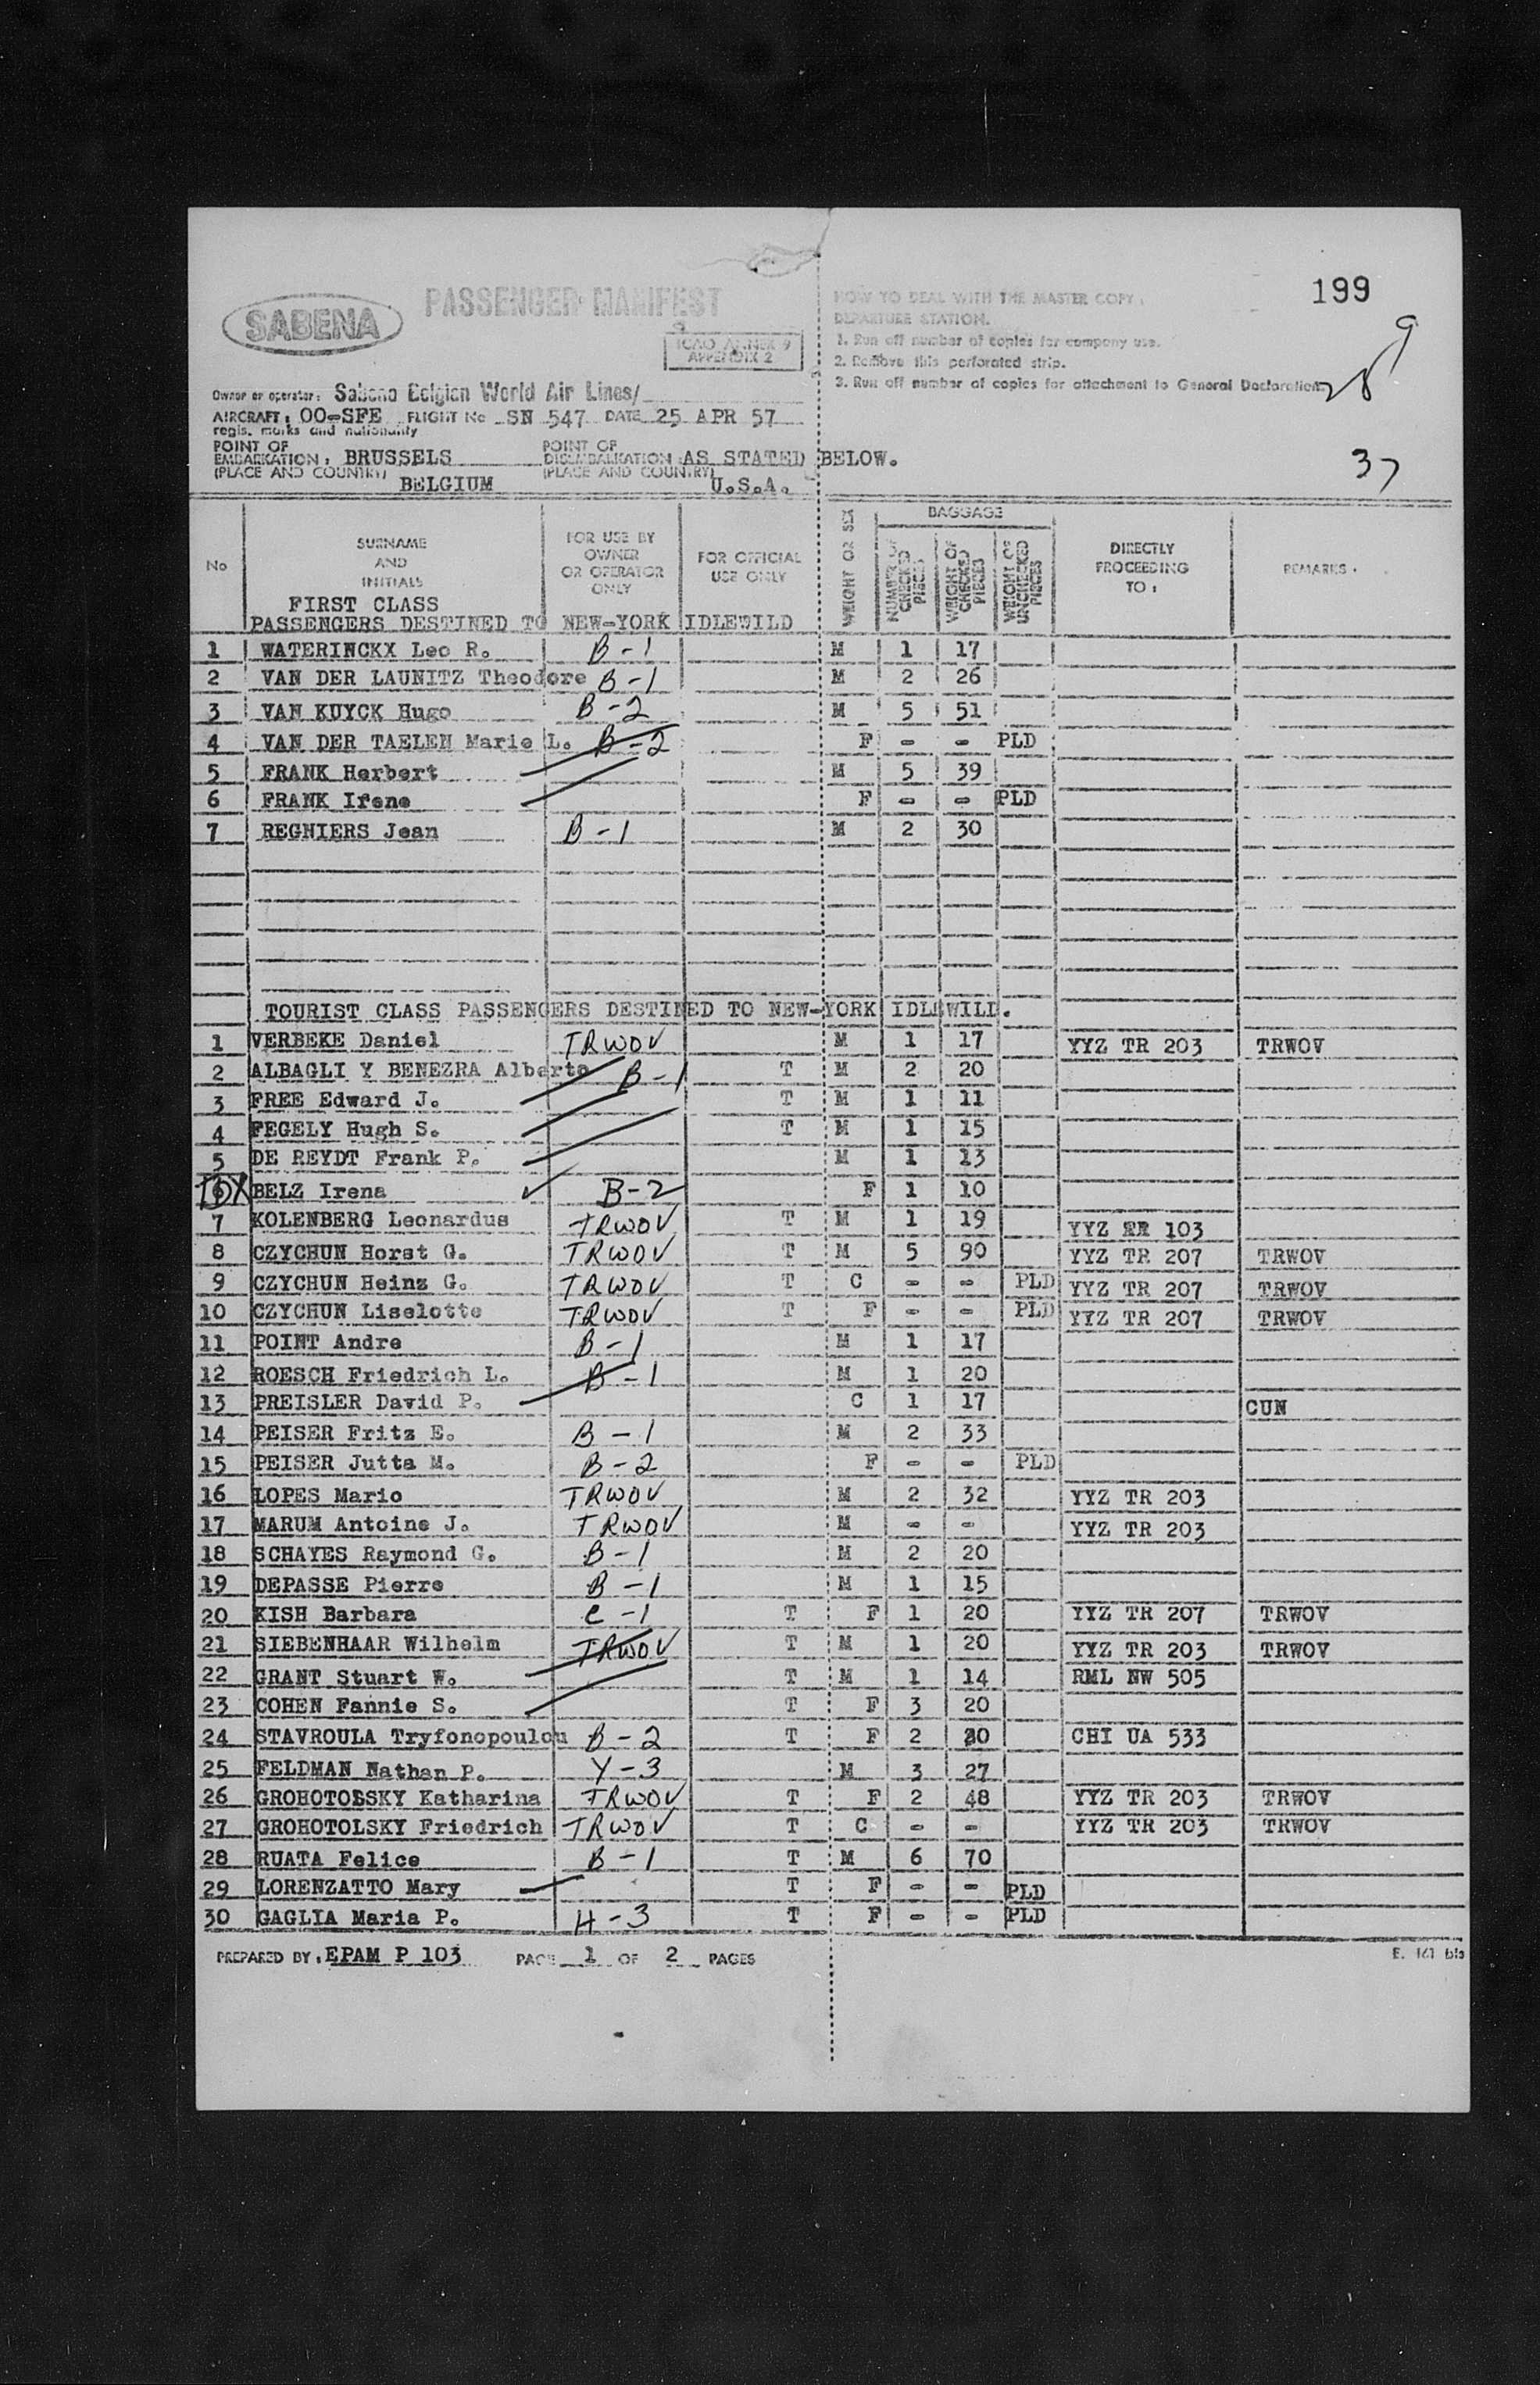 199
SABENA
PASSENGER MANIFEST
ICAO ANNEX 9
APPENDIX 2
HOW TO DEAL WITH THE MASTER COPY :
DEPARTURE STATION.
1. Run off number of copies for company use.
2. Remove this perforated strip.
3. Run off number of copies for attachment to General Declaration.
9
28
37
Owner or operator: Sabena Belgian World Air Lines/
AIRCRAFT: OO-SFE FLIGHT No SN 547 DATE 25 APR 57
regis. marks and nationality
POINT OF EMBARKATION: BRUSSELS POINT OF DISEMBARKATION AS STATED BELOW.
(PLACE AND COUNTRY) BELGIUM (PLACE AND COUNTRY) U.S.A.
No SURNAME AND INITIALS FOR USE BY OWNER OR OPERATOR ONLY FOR OFFICIAL USE ONLY WEIGHT OR SEX BAGGAGE NUMBER OF CHECKED PIECES WEIGHT OF CHECKED PIECES WEIGHT OF UNCHECKED PIECES DIRECTLY PROCEEDING TO: REMARKS.
FIRST CLASS
PASSENGERS DESTINED TO NEW-YORK IDLEWILD
1 WATERINCKX Leo R. B-1 M 1 17
2 VAN DER LAUNITZ Theodore B-1 M 2 26
3 VAN KUYCK Hugo B-2 M 5 51
4 VAN DER TAELEN Marie L. B-2 F - - PLD
5 FRANK Herbert M 5 39
6 FRANK Irene F - - PLD
7 REGNIERS Jean B-1 M 2 30
TOURIST CLASS PASSENGERS DESTINED TO NEW-YORK IDLEWILD.
1 VERBEKE Daniel TRWOV M 1 17 YYZ TR 203 TRWOV
2 ALBAGLI Y BENEZRA Alberto B-1 T M 2 20
3 FREE Edward J. T M 1 11
4 FEGELY Hugh S. T M 1 15
5 DE REYDT Frank P. M 1 13
6 BELZ Irena B-2 F 1 10
7 KOLENBERG Leonardus TRWOV T M 1 19 YYZ TR 103
8 CZYCHUN Horst G. TRWOV T M 5 90 YYZ TR 207 TRWOV
9 CZYCHUN Heinz G. TRWOV T C - - PLD YYZ TR 207 TRWOV
10 CZYCHUN Liselotte TRWOV T F - - PLD YYZ TR 207 TRWOV
11 POINT Andre B-1 M 1 17
12 ROESCH Friedrich L. B-1 M 1 20
13 PREISLER David P. C 1 17 CUN
14 PEISER Fritz E. B-1 M 2 33
15 PEISER Jutta M. B-2 F - - PLD
16 LOPES Mario TRWOV M 2 32 YYZ TR 203
17 MARUM Antoine J. TRWOV M - - YYZ TR 203
18 SCHAYES Raymond G. B-1 M 2 20
19 DEPASSE Pierre B-1 M 1 15
20 KISH Barbara C-1 T F 1 20 YYZ TR 207 TRWOV
21 SIEBENHAAR Wilhelm TRWOV T M 1 20 YYZ TR 203 TRWOV
22 GRANT Stuart W. T M 1 14 RML NW 505
23 COHEN Fannie S. T F 3 20
24 STAVROULA Tryfonopoulou B-2 T F 2 20 CHI UA 533
25 FELDMAN Nathan P. Y-3 M 3 27
26 GROHOTOLSKY Katharina TRWOV T F 2 48 YYZ TR 203 TRWOV
27 GROHOTOLSKY Friedrich TRWOV T C - - YYZ TR 203 TRWOV
28 RUATA Felice B-1 T M 6 70
29 LORENZATTO Mary T F - - PLD
30 GAGLIA Maria P. H-3 T F - - PLD
PREPARED BY: EPAM P 103 PAGE 1 OF 2 PAGES
E. 161 bis